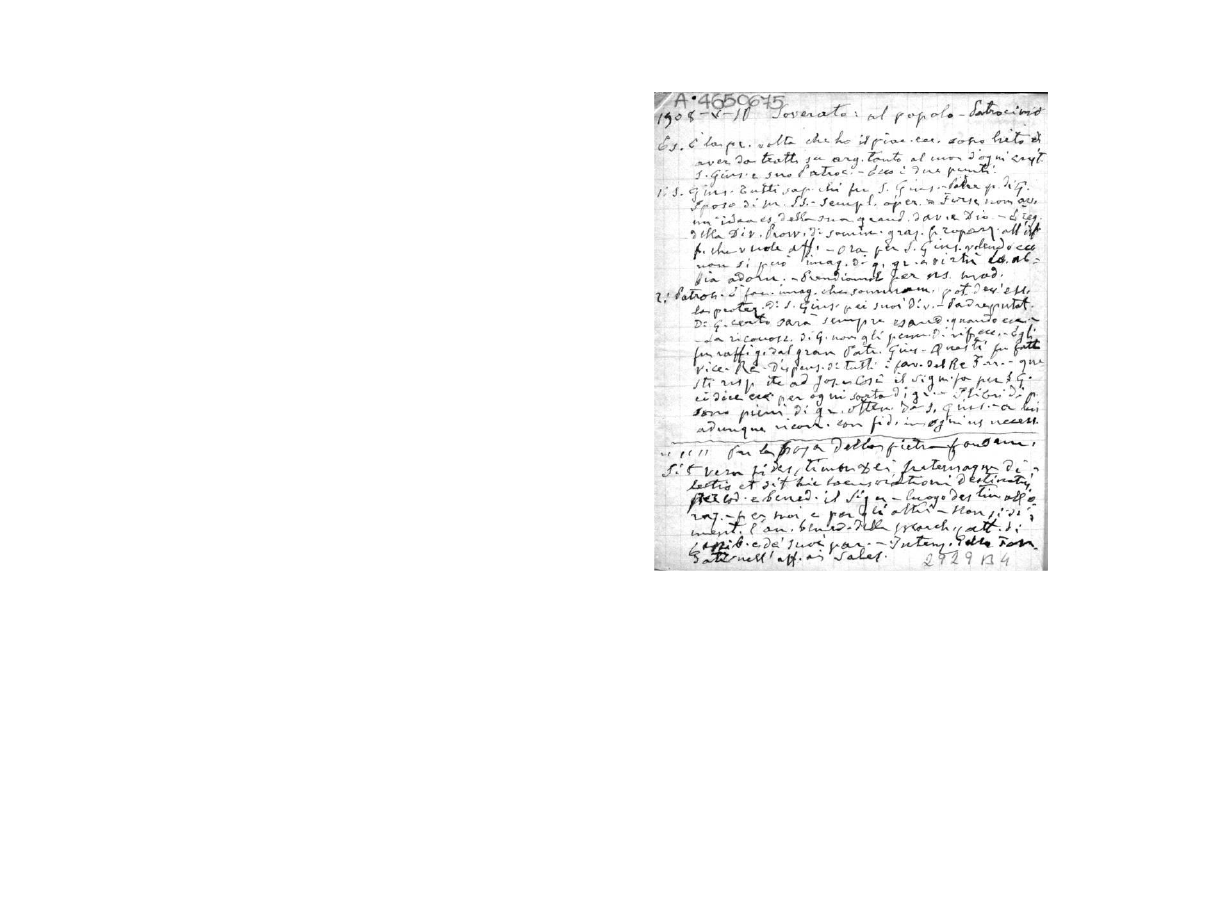 A 4650675
1908-V-10 Soverato: al popolo - Patrocinio
Es. È la pr. volta che ho il piac. ecc. sono lieto di
aver da tratt. su arg. tanto al d'ogni
S. Gius. e suo Patroc. - Ecco i due punti.
1: S. Gius. Tutti sap. chi fu S. Gius. - Padre p. di G.
Sposo di M. SS. - sempl. oper. = Forse non av.
un'idea es. della sua grand. dav. a Dio -
della Div. Provv. di somm. graz. proporz. all'
p. che vuole aff. - ora per S. Gius. volendo ecc
non si può imag. di q. gr. e virtù
sia adorn. - Prendiamolo per ns. mod.
2: Patroc. È fac. imag. che somma pot. dev'ess.
la protez. di S. Gius. pei suoi div. - Pad. reputat.
Di G. certo sarà sempre esaud. quando ecc -
- La riconosc. di G. non gli perm. di -
fu raffig. dal gran Patr. Gius - Questi fu fatt
vice-Re - Dispens. di tutti i fav. del Re - que
sti risp. ite ad Jos. Così il Sign. fa per S. G.
ci dice ecc per ogni sorta di gr. - I libri di p.
sono pieni di gr. otten. da S. Gius. - a lui
adunque ricorr. con fid. in ogni ns necess.
" " " " Per la posa della pietra fondam.
Sit vera fides, timor Dei fraternaque di-
lectio et sit hic locus orationi destinatus
e bened. il Sign - luogo destin. all'o
raz. - per noi e per gli altri - Non si di
ment. l'an. della March., att. di
e de' suoi par. - Intenz. della
nell' aff. ai Sales.
2929 B 4